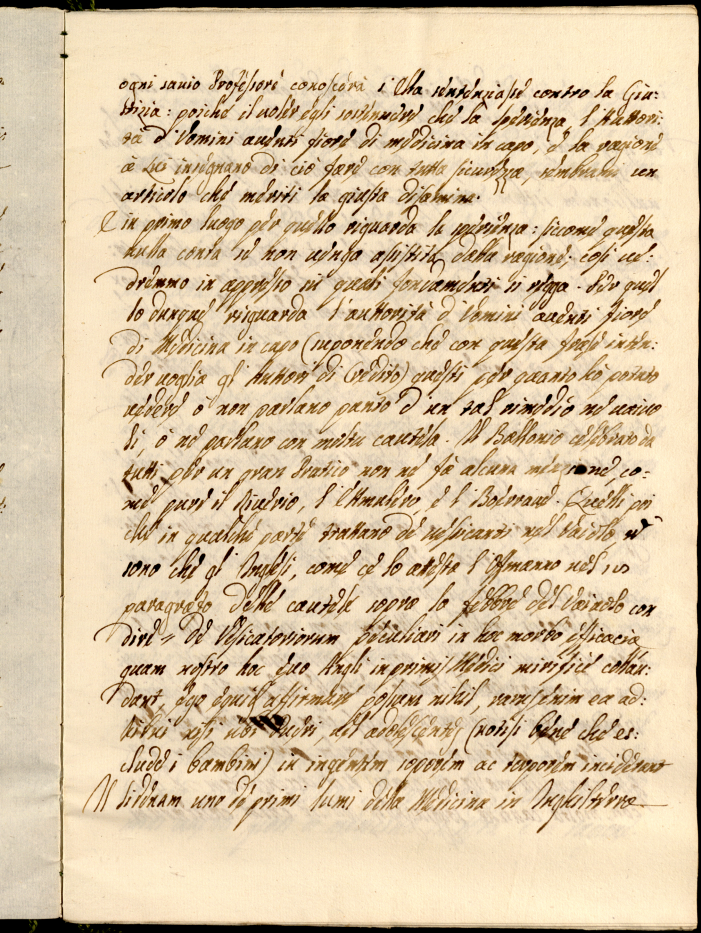 ogni savio Professore conoscerà s'Ella sentenziasse contro la Giu:
stizia: poiché il voler egli sostenere che la sperienza, l'Autori:
tà d'Uomini aventi fiore di medicina in capo, e la ragione
a Lui insegnano di ciò fare con tutta sicurezza, sembrami un
articolo che meriti la giusta disamina.
E in primo luogo per quello riguarda la sperienza: siccome questa
nulla conta se non venga assistita dalla ragione; così ve:
dremmo in appresso in quali fondamenti si regga. Per quel
lo dunque risguarda l'autorità d'Uomini aventi fiore
di Medicina in capo (suponendo che con questa frase inten:
der voglia gl'Auttori di Credito) questi per quanto hò potuto
vedere ò non parlano punto d'un tal rimedio ne vaivo
li, ò ne parlano con molta cautela. Il Ballonio celebrato da
tutti per un gran Pratico non ne fà alcuna menzione, co-
me pure il Riverio, l'Etmulero e l'Boerave. Quelli poi
che in qualche parte trattano de vesicanti nel vaiolo
sono che gl'Inglesi, come ce lo attesta l'Ofmanno nel suo
paragrafo delle cautele sopra la febbre del Vaiuolo con
dire = De Vesicatoriorum peculiari in hoc morbo efficacia
quam nostro hoc Evo Angli inprimis Medici mirifice collau:
dant, ego equidem affirmare possum nihil, nam enim ea ad:
hibui nisi ubi Pueri vel adolescentes (notisi bene che es:
clude i bambini) in ingentem soporem ac torporem inciderant
Il Sidenam uno de primi lumi della Medicina in Inghilterra